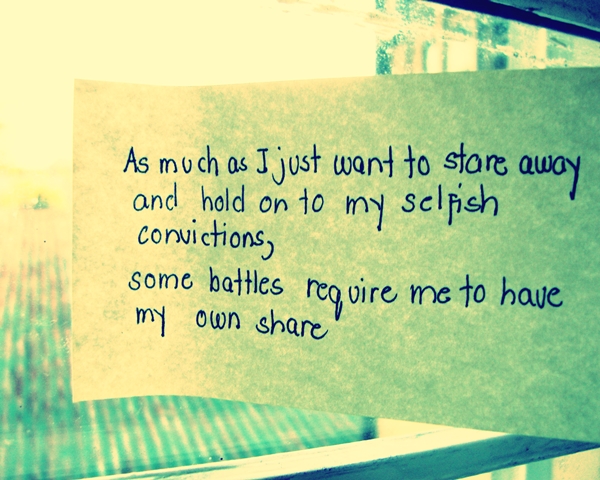 As much as I just want to stare away
and hold on to my selfish
convictions,
some battles require me to have
my own share